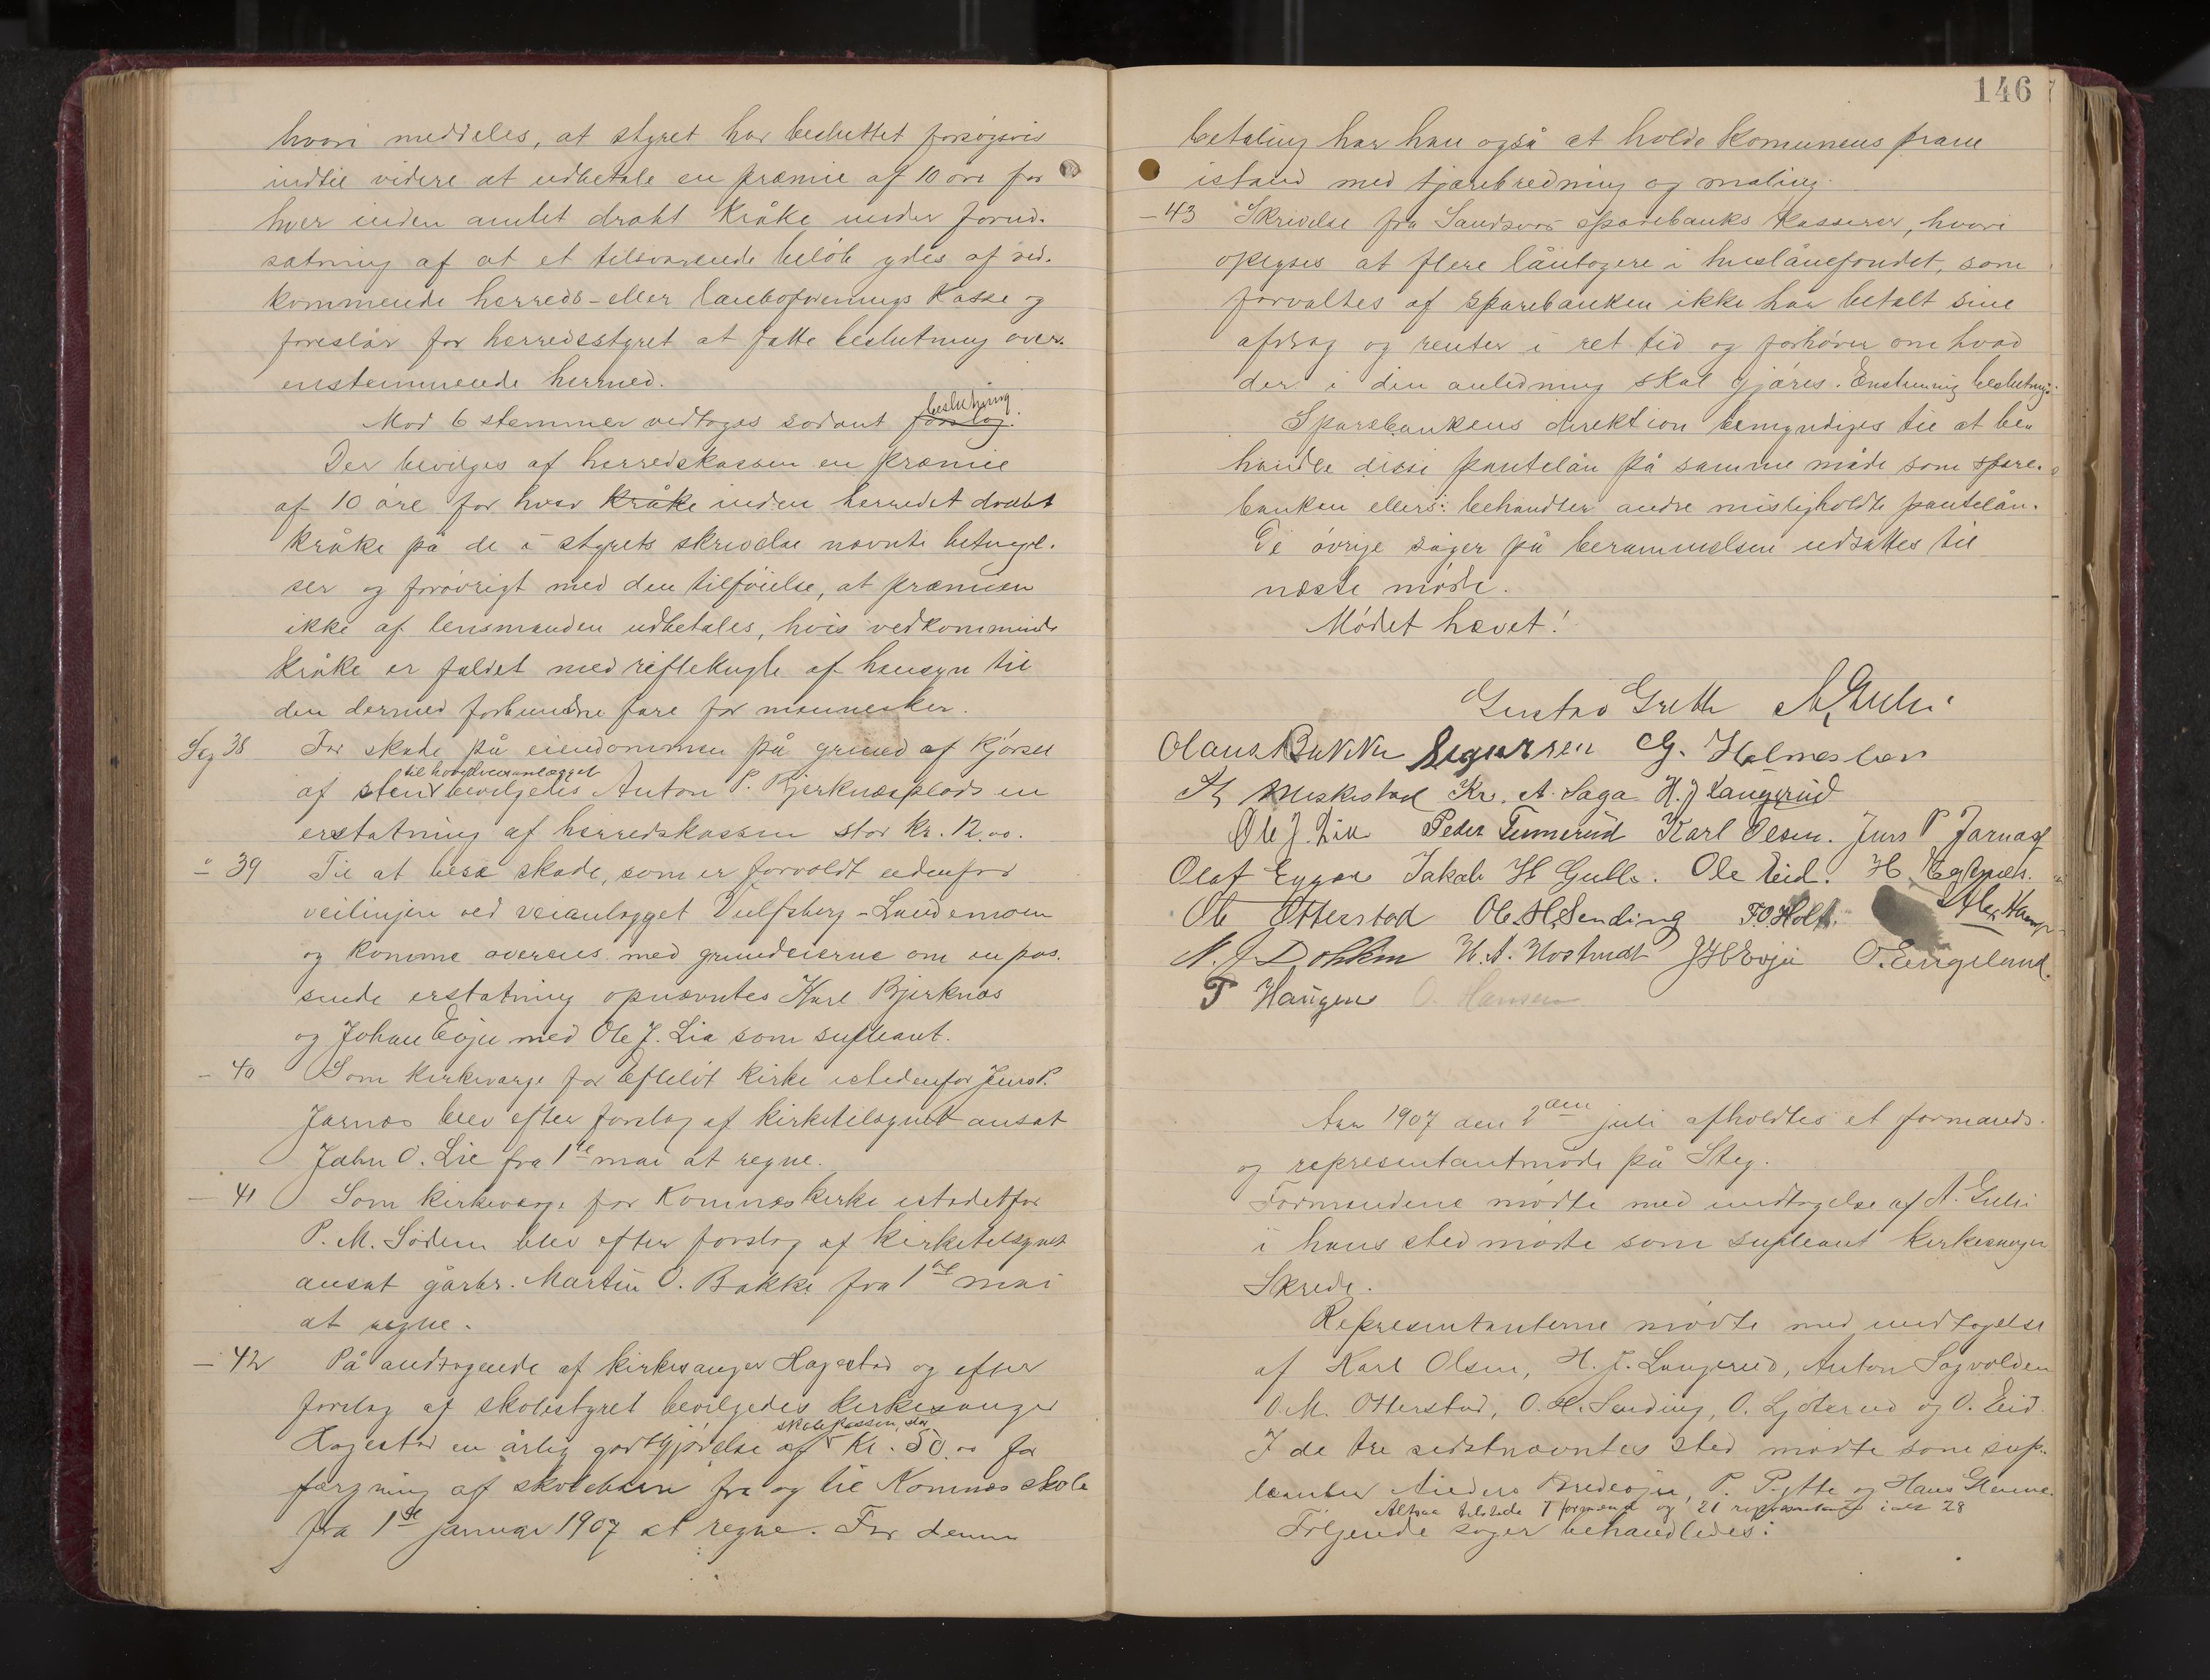 hvori meddeles, at styret har besluttet forsøgsvis
indtil videre at udbetale en præmie af 10 øre for
hver inden amtet dræbt kråke under forud-
sætning af at et tilsvarende beløb ydes af ved-
kommende herreds- eller landboforenings kasse og
foreslår for herredsstyret at fatte beslutning over-
enstemmende hermed.
Mod 6 stemmer vedtoges sådant forslag beslutning.
Der bevilges af herredskassen en præmie
af 10 øre for hver kråke inden herredet dræbt
kråke på de i styrets skrivelse nævnte betingel-
ser og forøvrigt med den tilføielse, at præmien
ikke af lensmanden udbetales, hvis vedkommende
kråke er faldet med riflekugle af hensyn til
den dermed forbundne fare for mennesker.
Sag 38 For skade på eiendommen på grund af kjørsel
af sten til hovedveianlægget bevilgedes Anton P. Bjerknæsplads en
erstatning af herredskassen stor kr. 12.00.
" 39 Til at bese skade, som er forvoldt udenfor
veilinjen ved veianlægget Vulfsberg - Landemoen
og komme overens med grundeierne om en pas-
sende erstatning opnævntes Karl Bjerknæs
og Johan Evju med Ole J. Lia som supleant.
- 40 Som kirkeværge for Efteløt kirke istedenfor Jens P.
Jarnæs blev efter forslag af kirketilsynet ansat
John O. Lie fra 1ste mai at regne.
- 41 Som kirkeværge for Komnæs kirke istedetfor
P. M. Sødem blev efter forslag af kirketilsynet
ansat gårbr. Martin O. Bakke fra 1ste mai
at regne.
- 42 På andragende af kirkesanger Hagestad og efter
forslag af skolestyret bevilgedes kirkesanger
Hagestad en årlig godtgjørelse af skolekassen, stor kr. 50.00 for
færgning af skolebørn fra og til Komnæs skole
fra 1ste januar 1907 at regne. For denne
146
betaling har han også at holde kommunens pram
istand med tjærebredning og maling.
- 43 Skrivelse fra Sandsvær sparebanks kasserer, hvori
oplyses at flere låntagere i huslånefondet, som
forvaltes af sparebanken ikke har betalt sine
afdrag og renter i ret tid og forhører om hvad
der i den anledning skal gjøres. Enstemmig beslutning:
Sparebankens direktion bemyndiges til at be-
handle disse pantelån på samme måde som spare-
banken ellers behandler andre misligholdte pantelån.
De øvrige sager på berammelsen udsattes til
næste møde.
Mødet hævet!
Gustav Greth A. Gulli
Olaus Bakke Segersen G. Holmesland
Meskestad Kr. A. Saga H. J Langerud
Ole J. Lia Peder Temmerud Karl Olsen. Jens P Jarnæs
Olaf Jakob H Gulli. Ole Eid. H.
Ole Otterstad Ole H. Sending F. O. Holt.
J H Evju O. Engelund.
T Haugen O. Hansen
Aar 1907 den 2den juli afholdtes et formands-
og representantmøde på Steg.
Formændene mødte med undtagelse af A. Gulli
i hans sted mødte som supleant kirkesanger
Skrede.
Representanterne mødte med undtagelse
af Karl Olsen, H. J. Langerud, Anton Sagvolden
O. M. Otterstad, O. H. Sending, O. Ljøterud og O. Eid.
I de tre sidstnævntes sted mødte som sup-
leanter Anders Bredesju, P. Pytte og Hans Stenne.
Altsaa tilstede 7 formænd og 21 representanter ialt 28
Følgende sager behandledes: